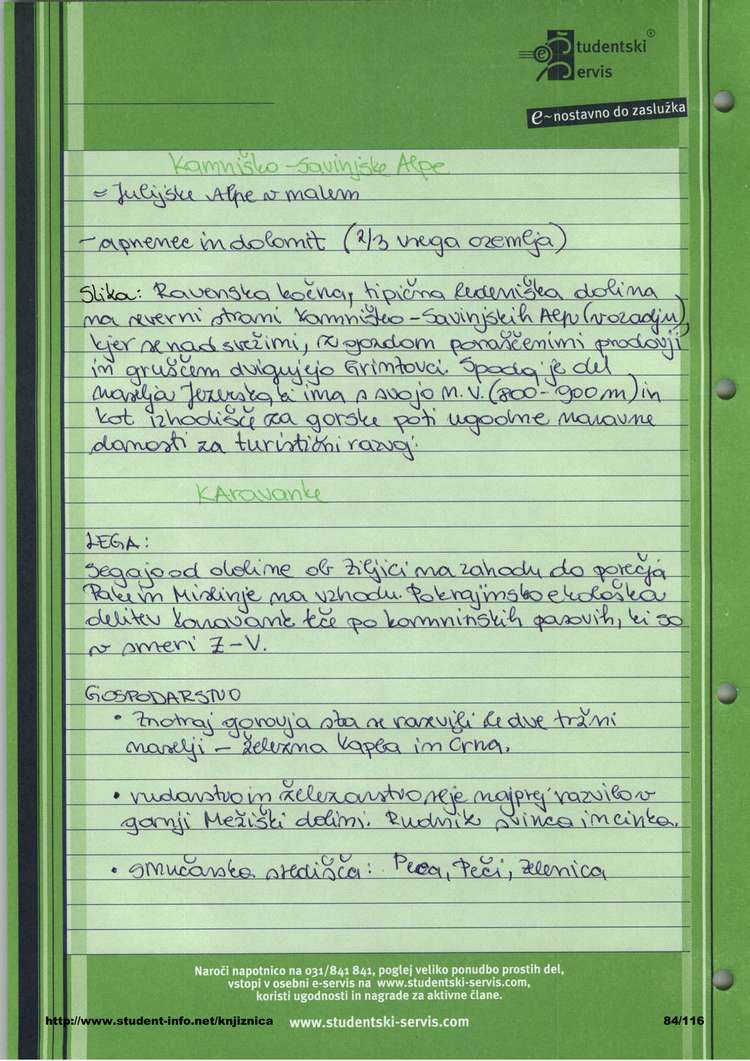 Študentski®
Servis
e~nostavno do zaslužka
Kamniško-Savinjske Alpe
= Julijske Alpe v malem
- apnenec in dolomit (2/3 vsega ozemlja)
Slika: Ravenska kočna, tipična ledeniška dolina
na severni strani Kamniško-Savinjskih Alp (v ozadju),
kjer se nad svežimi, z gozdom poraščenimi prodovji
in gruščem dvigujejo Grintovci. Spodaj je del
naselja Jezersko, ki ima s svojo n.v. (800-900m) in
kot izhodišče za gorske poti ugodne naravne
danosti za turistični razvoj.
KAravanke
LEGA:
Segajo od doline ob Ziljici na zahodu do porečja
Pake in Mislinje na vzhodu. Pokrajinsko ekološka
delitev Karavank teče po kamninskih pasovih, ki so
v smeri Z-V.
GOSPODARSTVO
• Znotraj gorovja sta se razvili le dve tržni
naselji - Železna Kapla in Črna.
• rudarstvo in železarstvo se je najprej razvilo v
gornji Mežiški dolini. Rudnik svinca in cinka.
• smučarska središča: Peca, Peči, Zelenica
Naroči napotnico na 031/841 841, poglej veliko ponudbo prostih del,
vstopi v osebni e-servis na www.studentski-servis.com,
koristi ugodnosti in nagrade za aktivne člane.
http://www.student-info.net/knjiznica www.studentski-servis.com 84/116